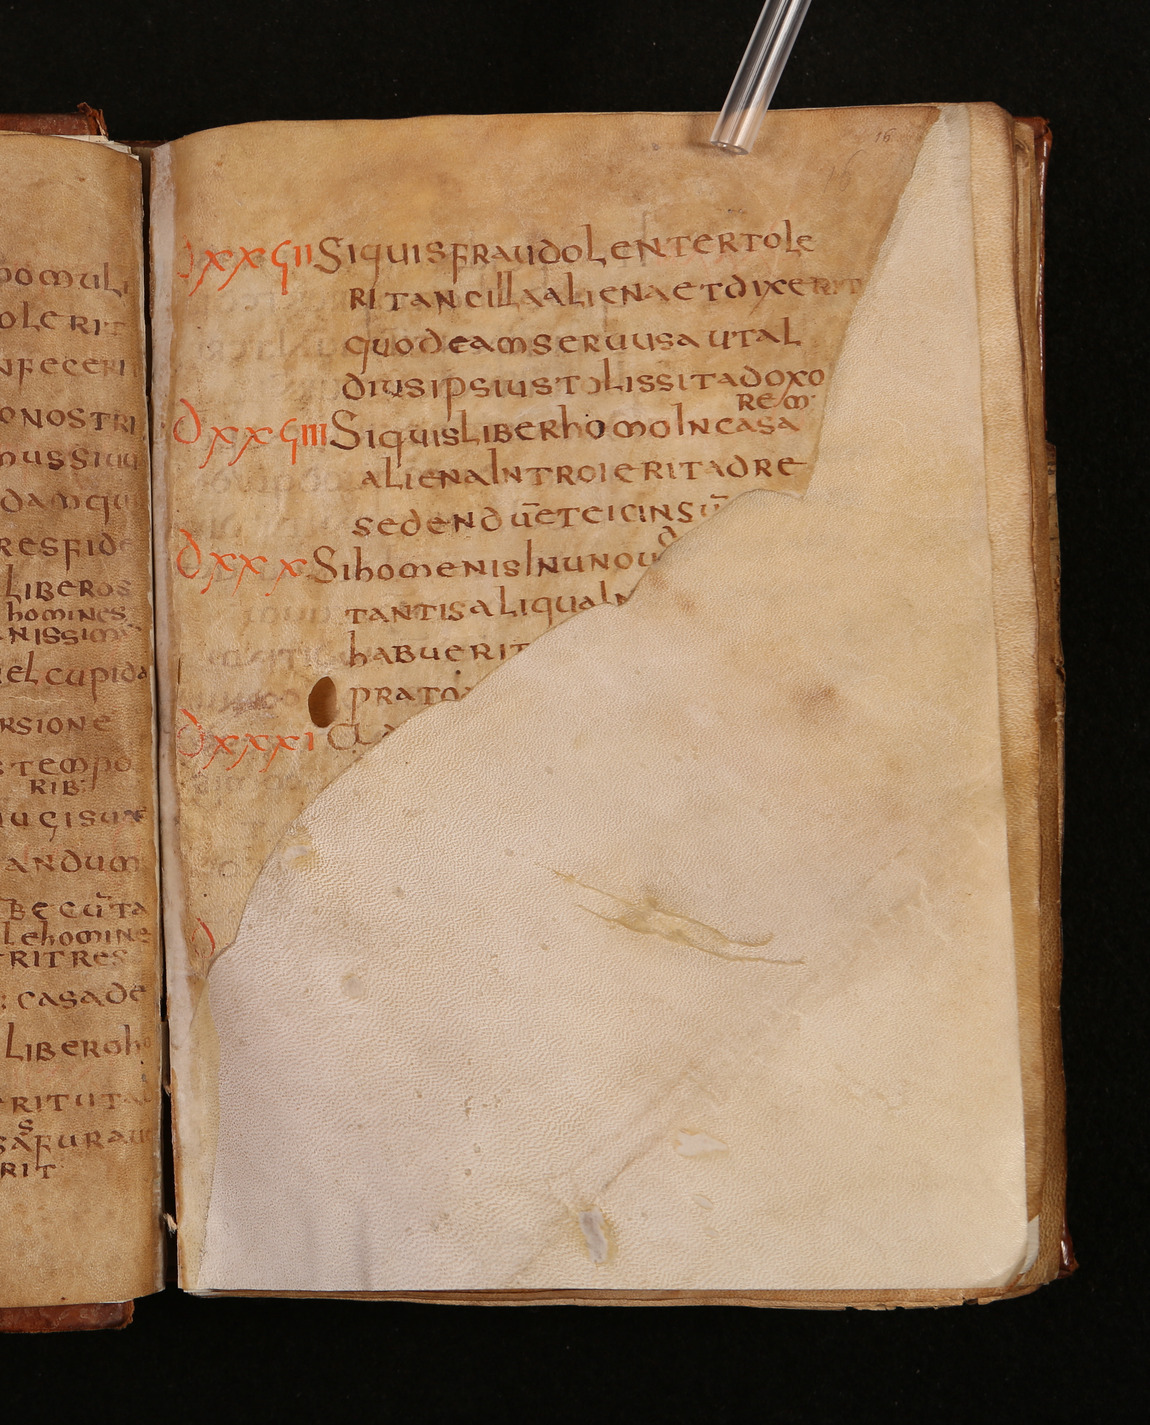 pomuli
oleRit
nfeceRi
onostRi
mussiuu
damqui
Resfide
libeRos
homines
anissim
el cupida
Rsione
tempo
Rib:
andum
lehomine
RitRes
casade
libeRoho
Rituta
s
safuRau
Rit
16
ꝹxxꞔII SiquisfRaudolenteRtole
Ritancillaalienaetdixerit
quodeamseruusautal
diusipsiustolissitadoxo
Rem:
ꝹxxꞔIII Siquisliberhomoincasa
alienaintroieritadre
sedendūeteicinsū
Ꝺxxx Sihomenisinunou
d
tantisaliqualn
habuerit
prato
Ꝺxxxi Cla
Ꝺ